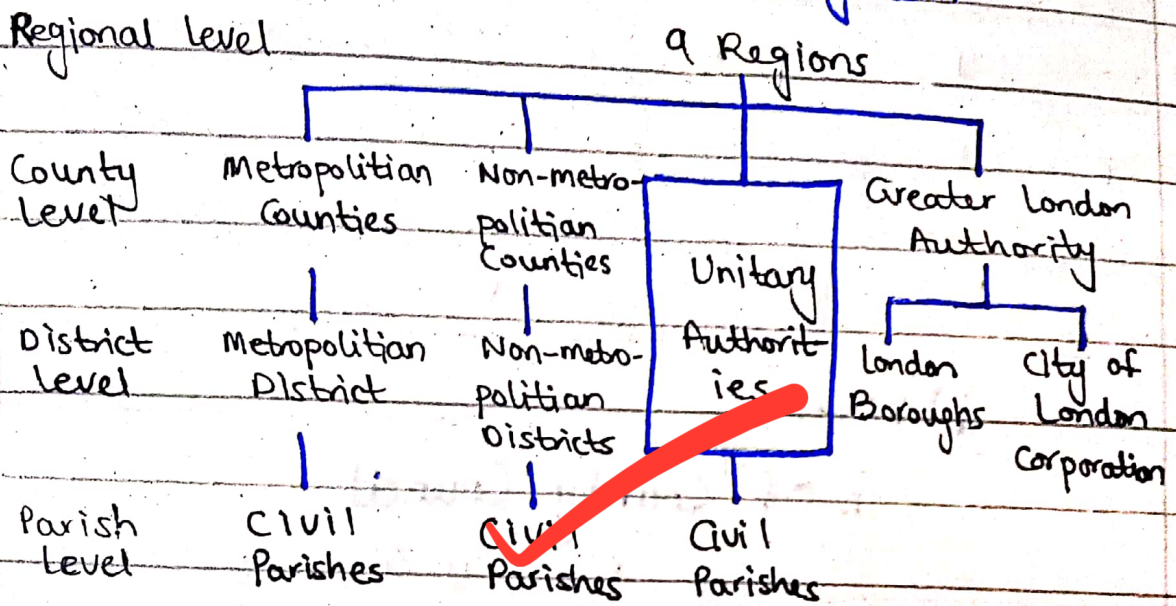 Regional Level
9 Regions
County Level
Metropolitian Counties
Non-metro-
politian
Counties
Unitary
Authorit-
ies
Greater London
Authority
District
Level
Metropolitian
District
Non-metro-
politian
Districts
London
Boroughs
City of
London
Corporation
Parish
Level
Civil
Parishes
Civil
Parishes
Civil
Parishes